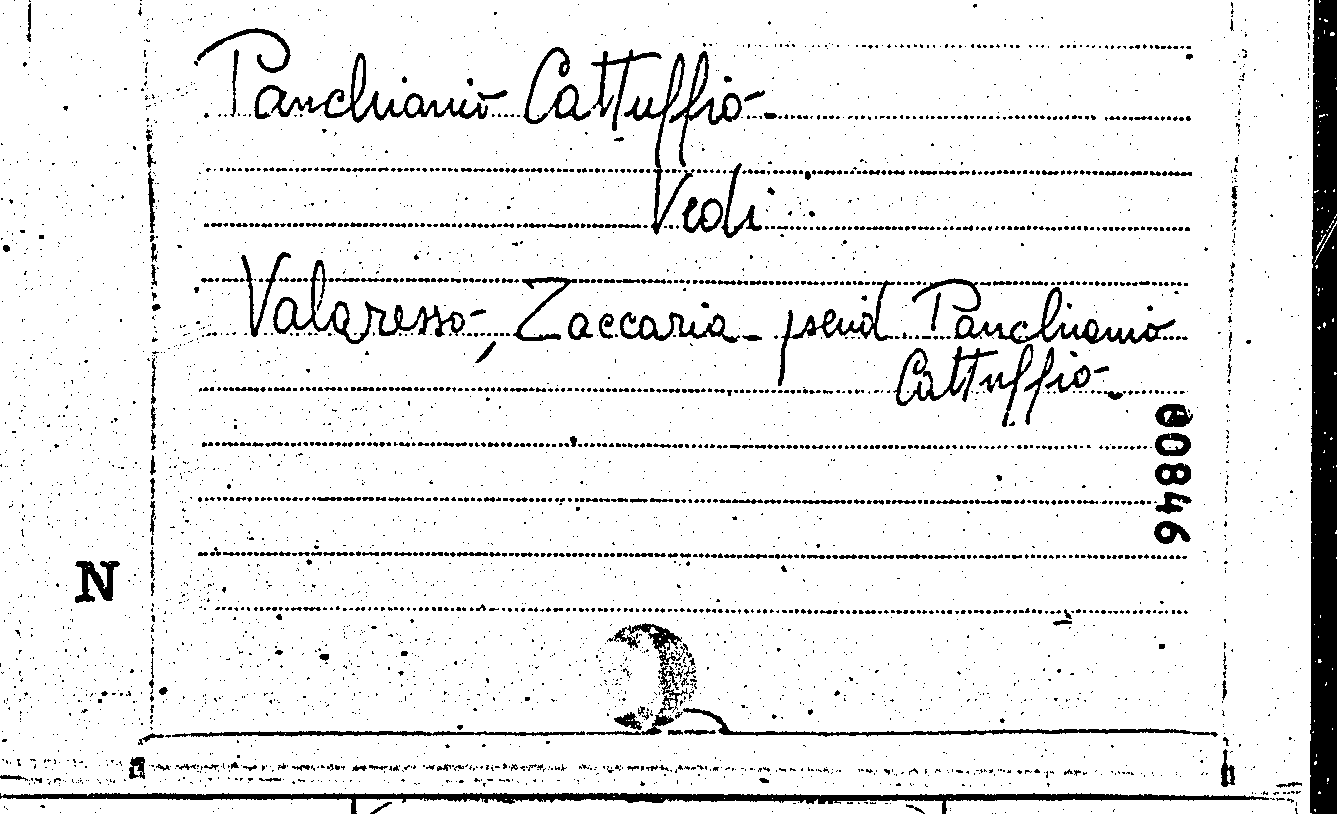 Panchianio Cattuffio-
Vedi
Valaresso-, Zaccaria - pseud. Panchianio
Cattuffio-
00846
N